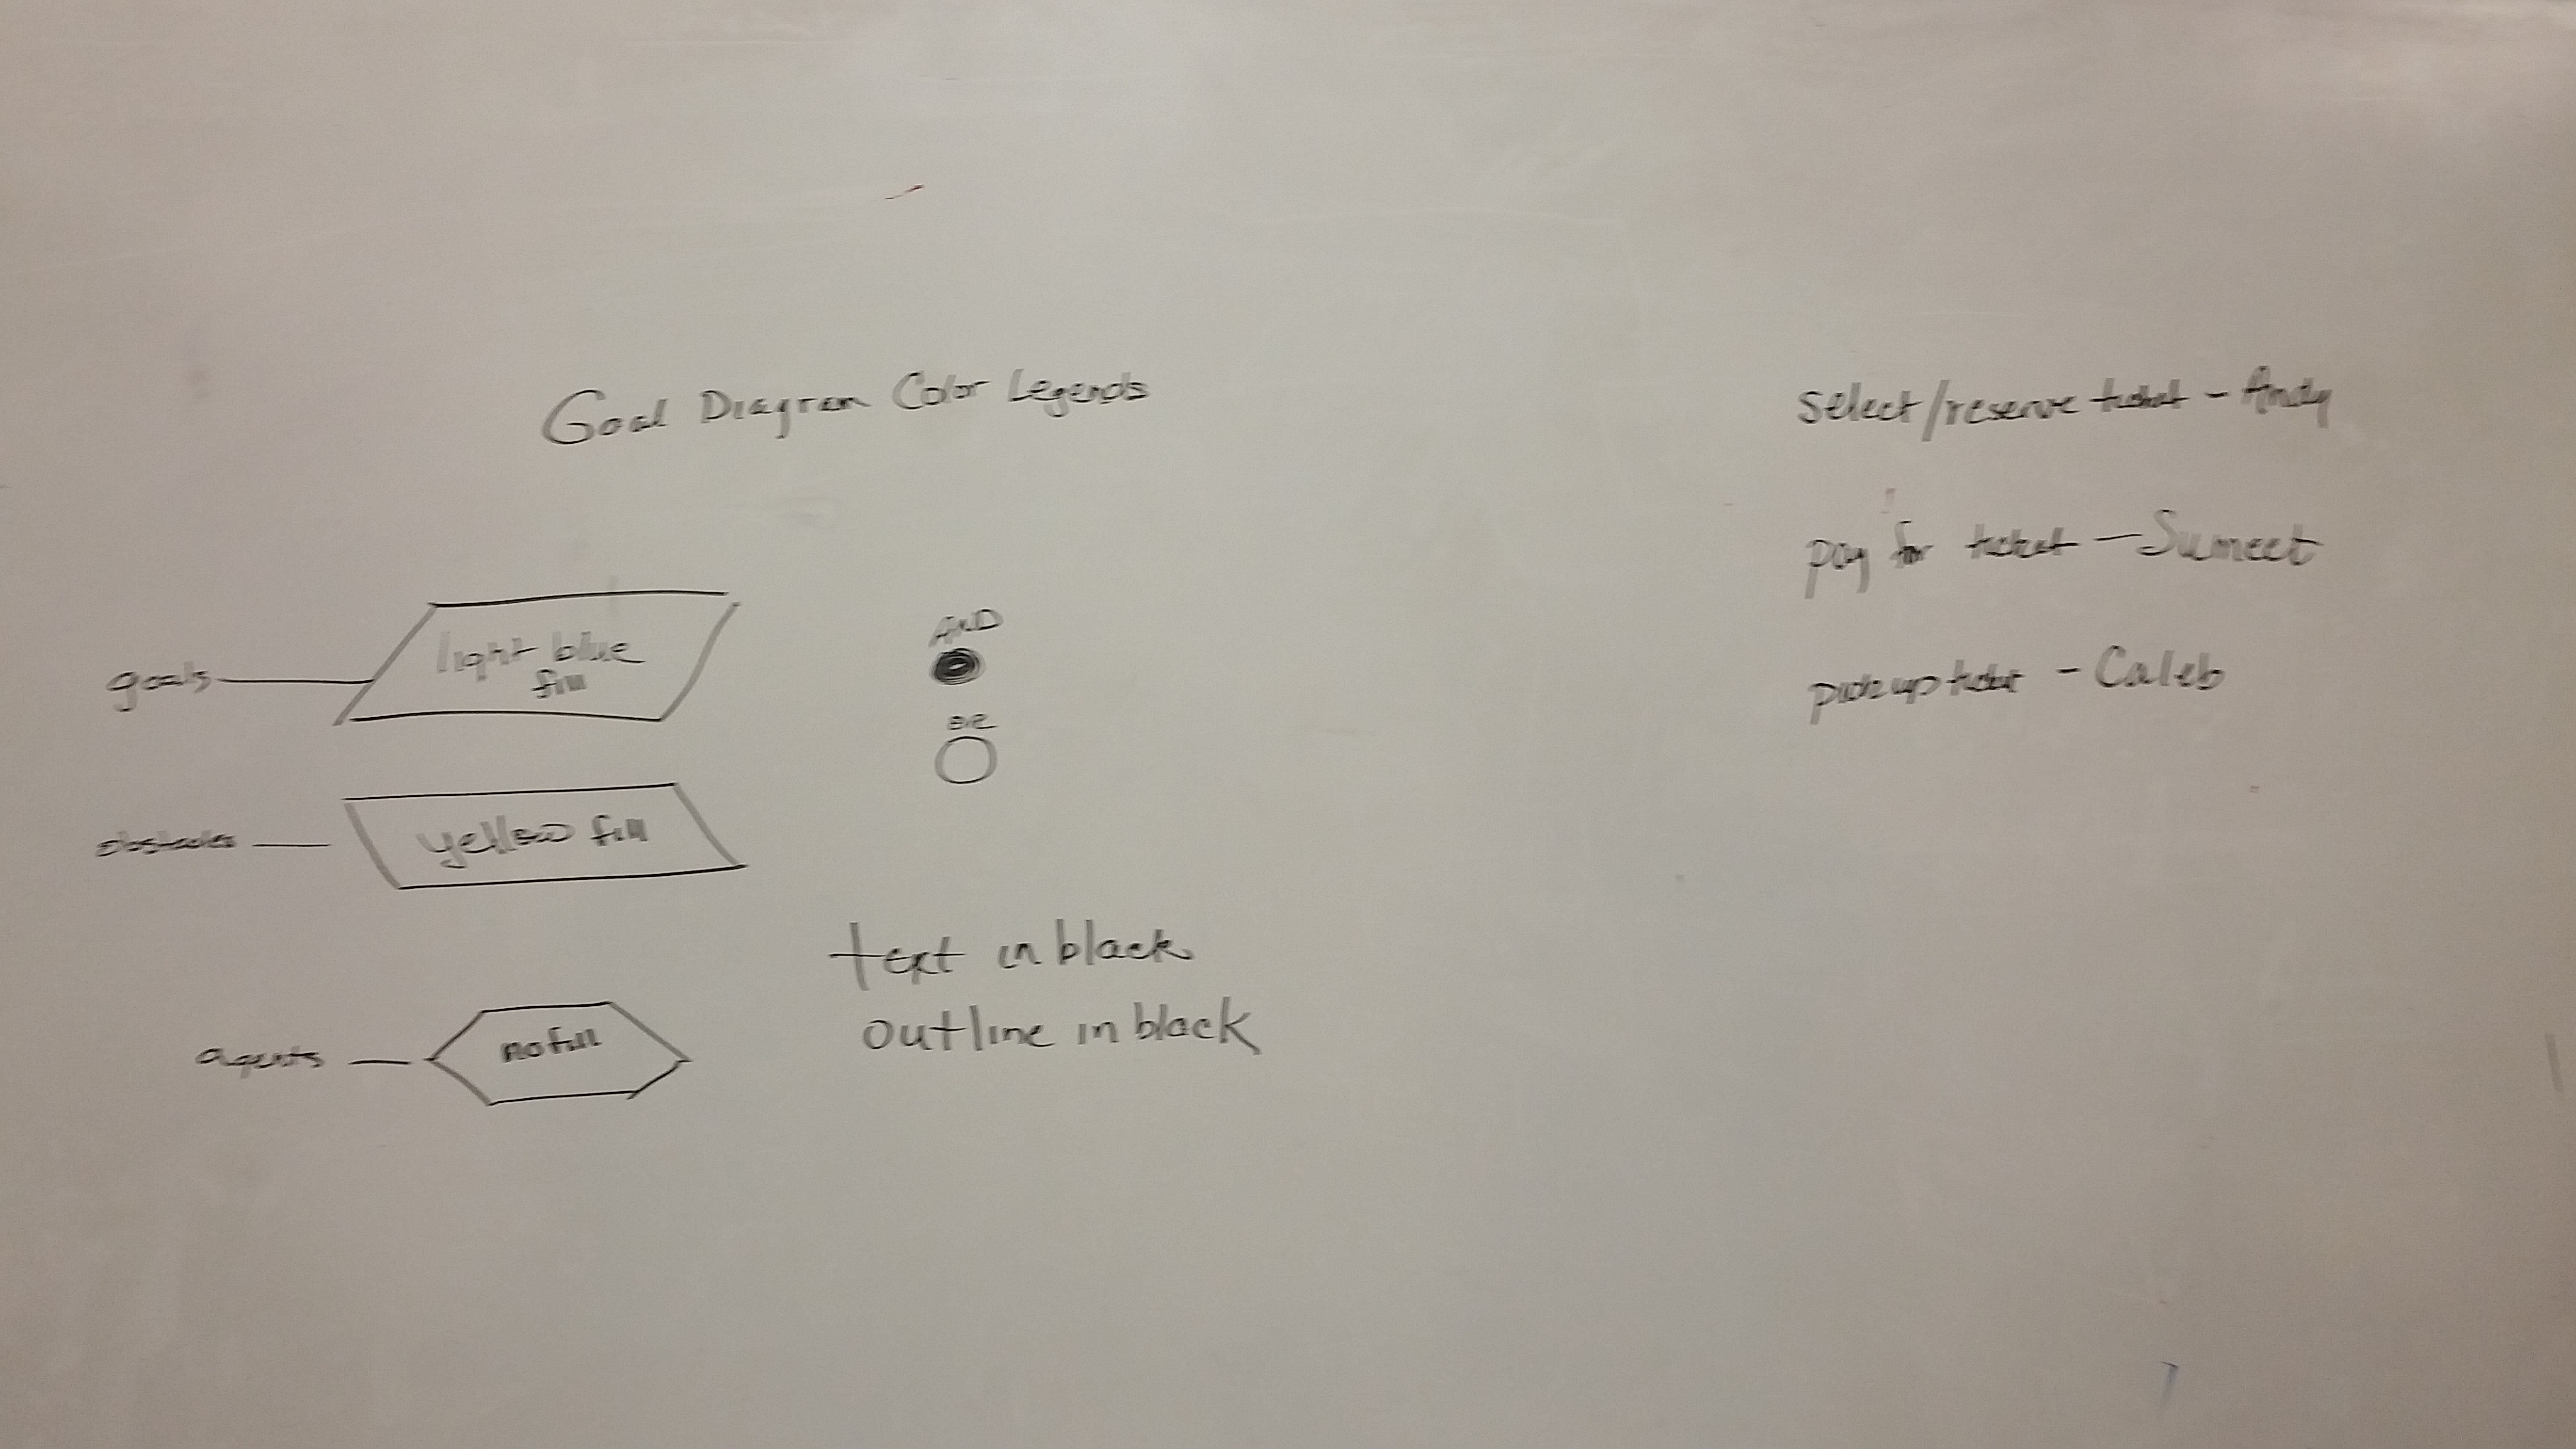 Goal Diagram Color Legends
goals
light blue
fill
AND
OR
obstacles
yellow fill
agents
no fill
text in black
outline in black
select/reserve ticket - Andy
pay for ticket - Sumeet
pickup ticket - Caleb